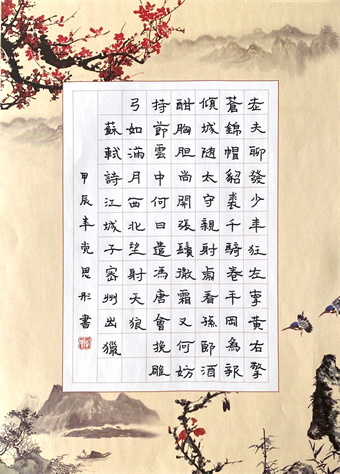 老夫聊發少年狂左牽黃右擎
蒼錦帽貂裘千騎卷平岡為報
傾城隨太守親射虎看孫郎酒
酣胸胆尚開張鬢微霜又何妨
持節雲中何日遣馮唐會挽雕
弓如滿月西北望射天狼
蘇軾詩江城子密州出獵
甲辰年思彤書